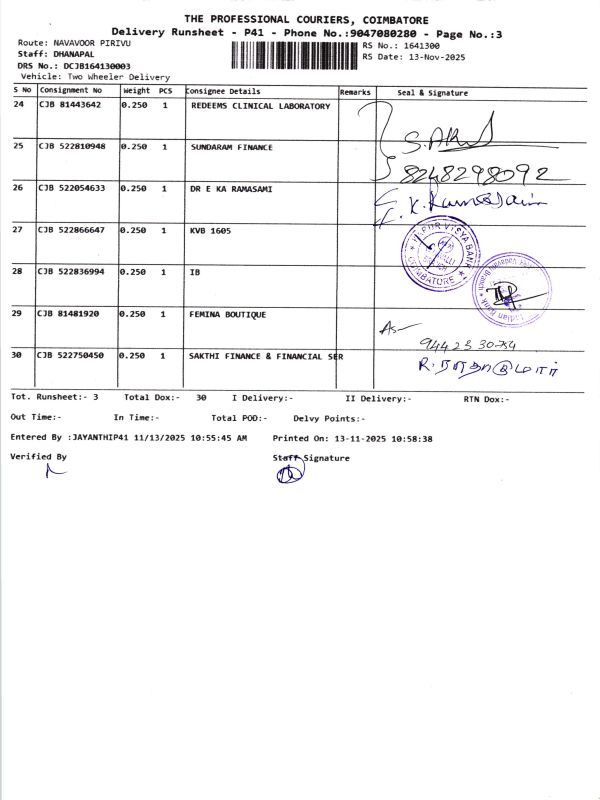 THE PROFESSIONAL COURIERS, COIMBATORE
Delivery Runsheet - P41 - Phone No.:9047080280 - Page No.:3
Route: NAVAVOOR PIRIVU
RS No.: 1641300
Staff: DHANAPAL
RS Date: 13-Nov-2025
DRS No.: DCJB164130003
Vehicle: Two Wheeler Delivery
S No Consignment No Weight PCS Consignee Details Remarks Seal & Signature
24 CJB 81443642 0.250 1 REDEEMS CLINICAL LABORATORY
25 CJB 522810948 0.250 1 SUNDARAM FINANCE
8248298092
26 CJB 522054633 0.250 1 DR E KA RAMASAMI
27 CJB 522866647 0.250 1 KVB 1605
28 CJB 522836994 0.250 1 IB
29 CJB 81481920 0.250 1 FEMINA BOUTIQUE
30 CJB 522750450 0.250 1 SAKTHI FINANCE & FINANCIAL SER
Tot. Runsheet:- 3 Total Dox:- 30 I Delivery:- II Delivery:- RTN Dox:-
Out Time:- In Time:- Total POD:- Delvy Points:-
Entered By :JAYANTHIP41 11/13/2025 10:55:45 AM Printed On: 13-11-2025 10:58:38
Verified By Staff Signature